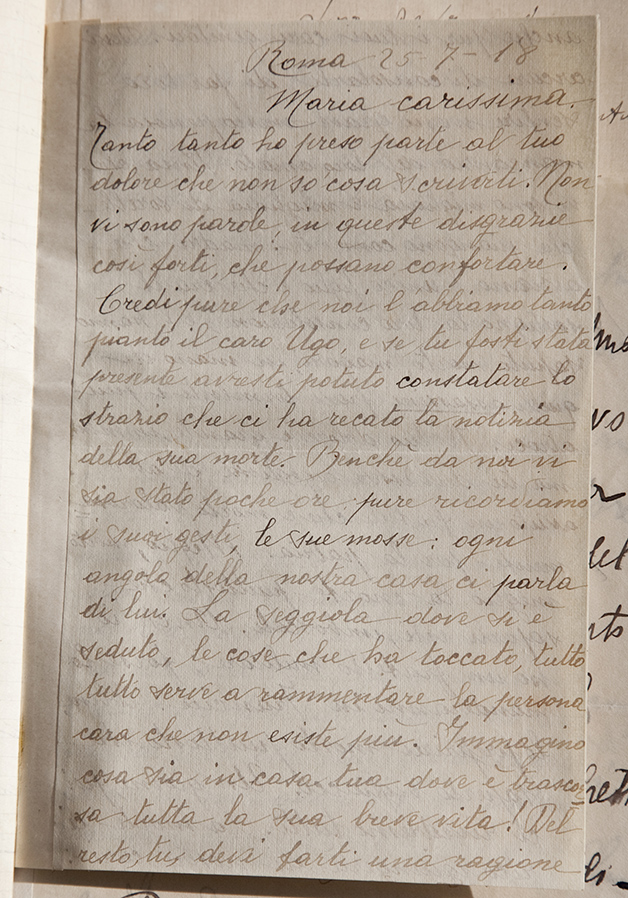 Roma 25-7-18
Maria carissima.
Tanto tanto ho preso parte al tuo
dolore che non so cosa scriverti. Non
vi sono parole, in queste disgrazie
cosi forti, che possano confortare.
Credi pure che noi l abbiamo tanto
pianto il caro Ugo, e se tu fosti stata
presente avresti potuto constatare lo
strazio che ci ha recato la notizia
della sua morte. Benchè da noi vi
sia stato poche ore pure ricordiamo
i suoi gesti, le sue mosse: ogni
angolo della nostra casa ci parla
di lui. La seggiola dove si è
seduto, le cose che ha toccato, tutto
tutto serve a rammentare la persona
cara che non esiste più. Immagino
cosa sia in casa tua dove è trascor
sa tutta la sua breve vita! Del
resto, tu, devi farti una ragione